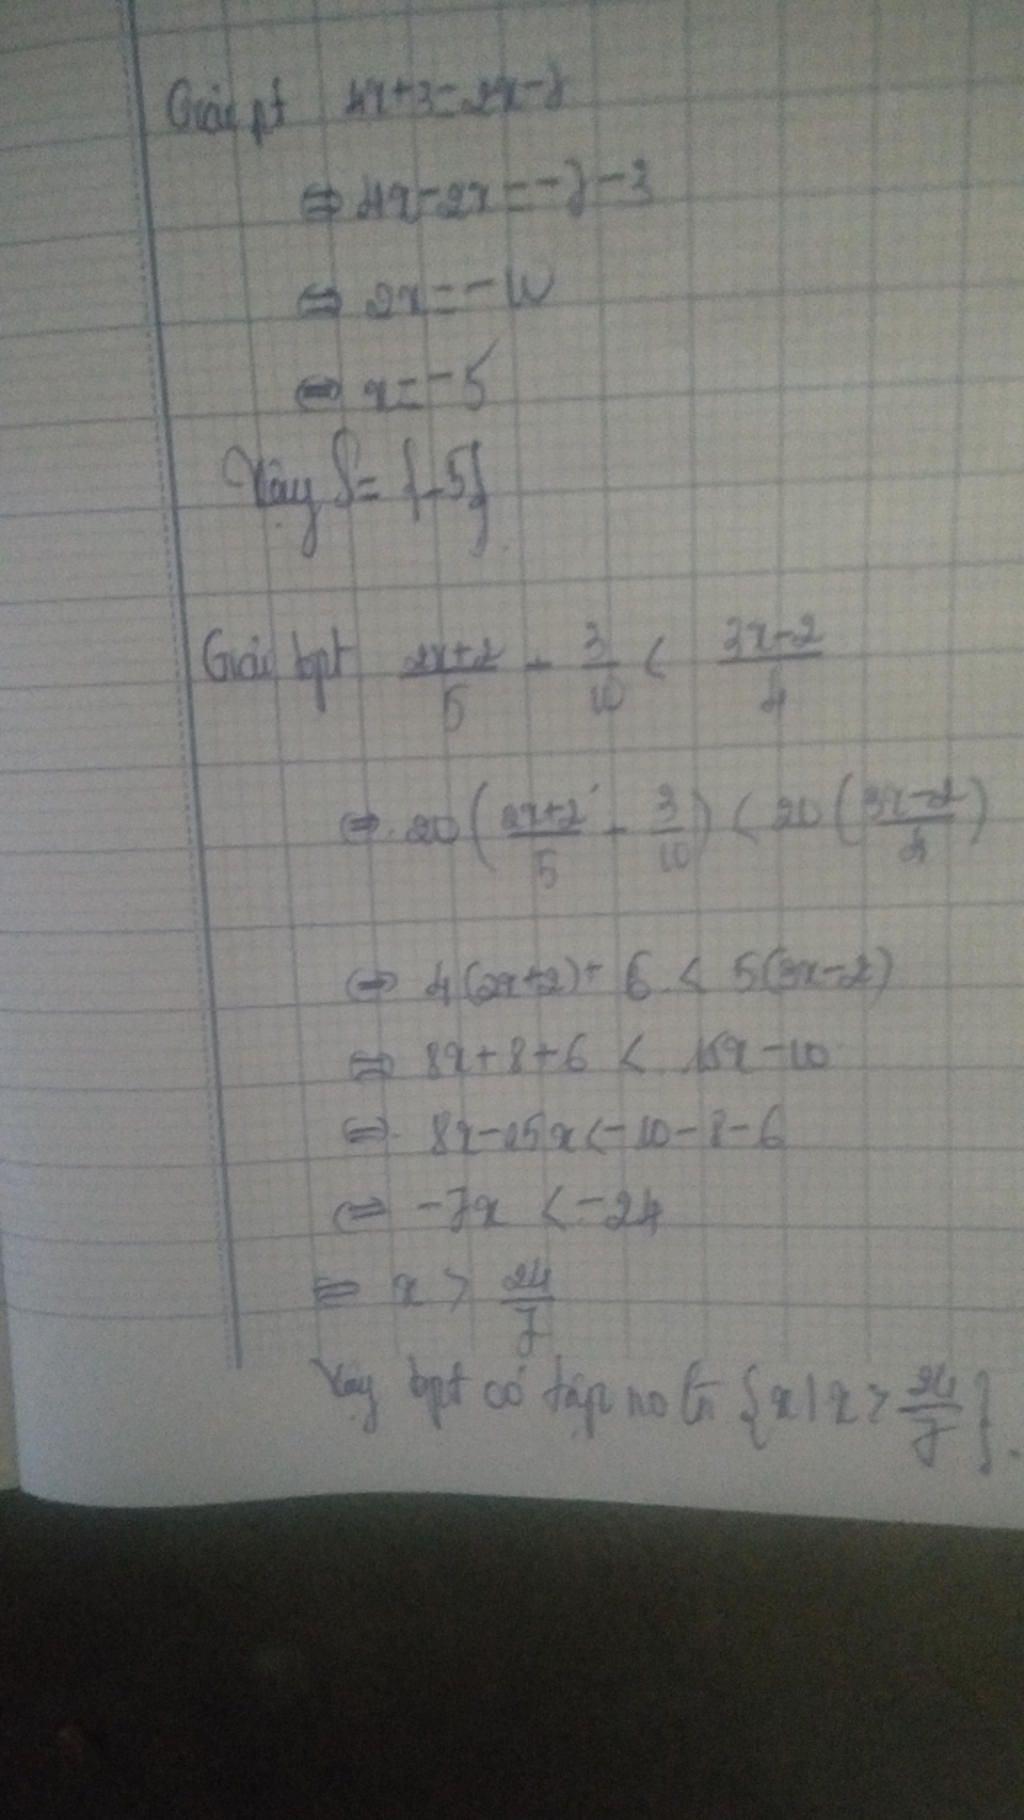 Giải pt 4x+3=2x-7
⇔ 4x-2x=-7-3
⇔ 2x=-10
⇔ x=-5
Vậy S={-5}
Giải bpt \frac{2x+2}{5} + \frac{3}{10} < \frac{3x-2}{4}
⇔ 20(\frac{2x+2}{5} + \frac{3}{10}) < 20(\frac{3x-2}{4})
⇔ 4(2x+2)+6 < 5(3x-2)
⇔ 8x+8+6 < 15x-10
⇔ 8x-15x<-10-8-6
⇔ -7x <-24
⇔ x > \frac{24}{7}
Vậy bpt có tập no là {x|x > \frac{24}{7}}.